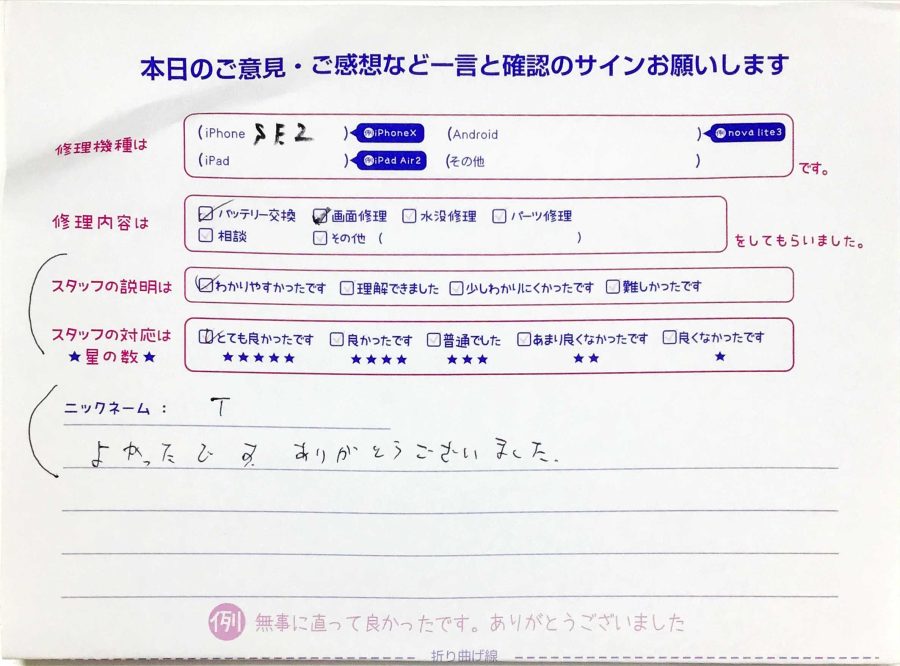 本日のご意見・ご感想など一言と確認のサインお願いします
修理機種は
(iPhone SE2 ) 例iPhoneX (Android ) 例nova lite3
(iPad ) 例iPad Air2 (その他 )
です。
修理内容は
バッテリー交換 画面修理 水没修理 パーツ修理
相談 その他 ( )
をしてもらいました。
スタッフの説明は わかりやすかったです 理解できました 少しわかりにくかったです 難しかったです
スタッフの対応は とても良かったです 良かったです 普通でした あまり良くなかったです 良くなかったです
★星の数★ ★★★★★ ★★★★ ★★★ ★★ ★
ニックネーム： T
よかったです ありがとうございました.
例 無事に直って良かったです。ありがとうございました
折り曲げ線